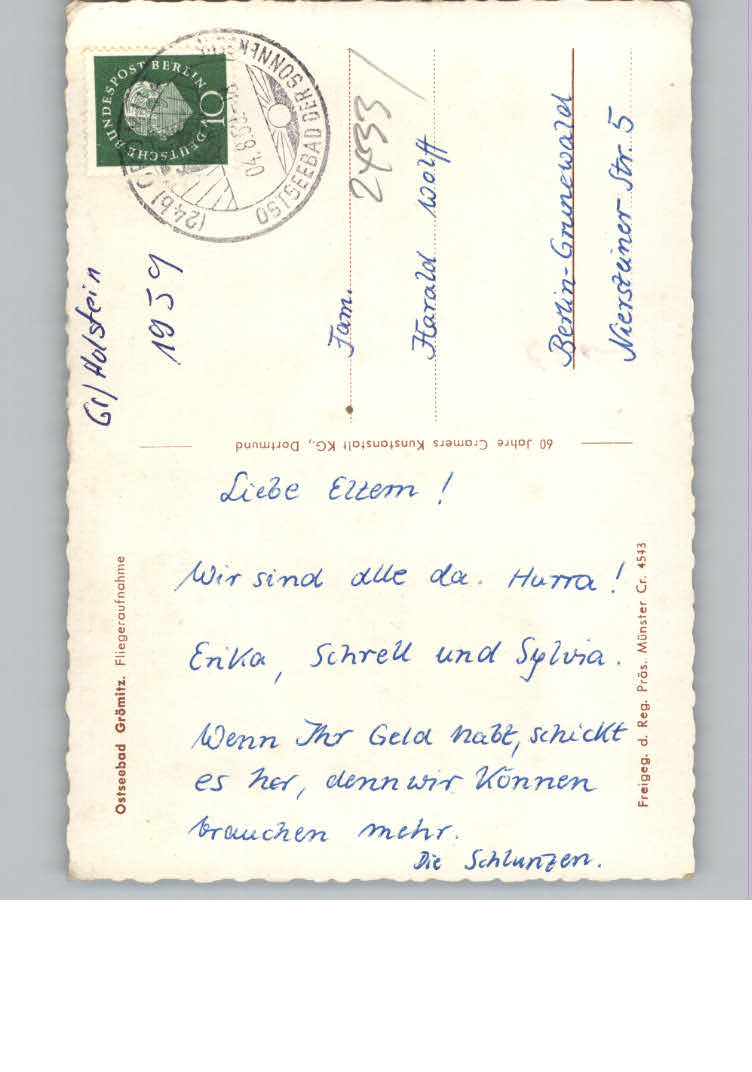 Liebe Eltern!
Wir sind alle da. Hurra!
Erika, Schrell und Sylvia.
Wenn Ihr Geld habt, schickt
es her, denn wir können
brauchen mehr.
Die Schlunzen.
Ostseebad Grömitz. Fliegeraufnahme
Freigeg. d. Reg. Präs. Münster Cr. 4543
60 Jahre Cramers Kunstanstalt KG., Dortmund
Gr/Holstein
1959
DEUTSCHE BUNDESPOST BERLIN
10
(24b)
OSTSEEBAD DER SONNENSEITE
04.8.59
2433
Fam.
Harald Wolff
Berlin-Grunewald
Niersteiner Str. 5